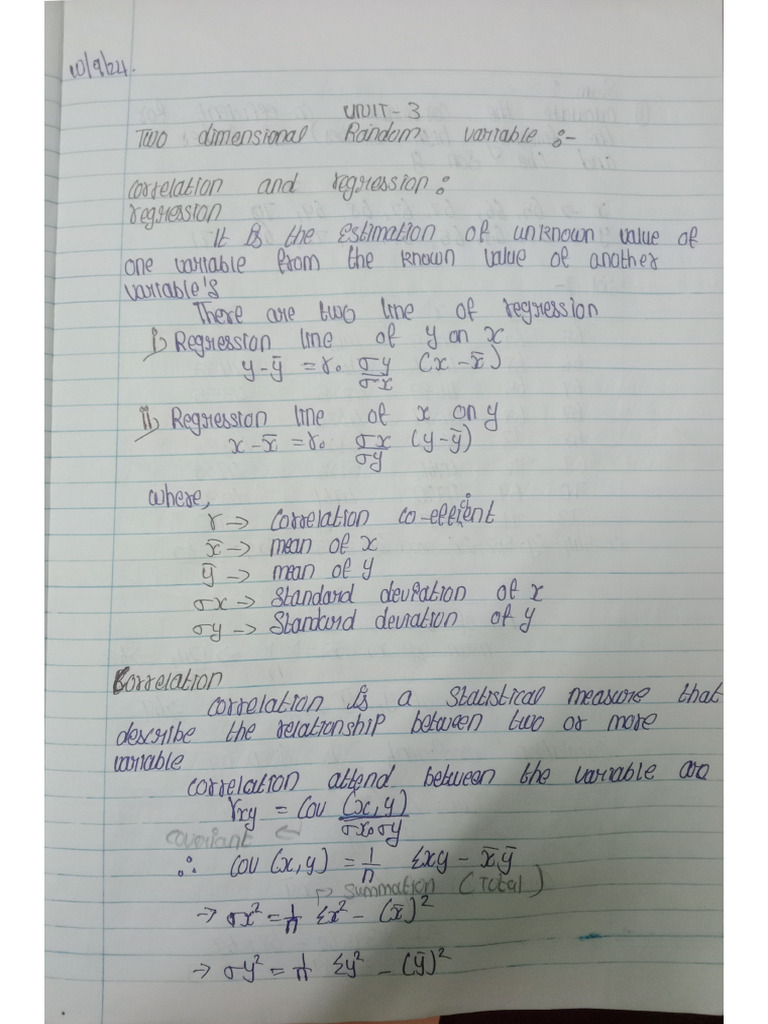 10/9/24.
UNIT-3
Two dimensional Random variable :-
correlation and regression :
regression
It is the Estimation of unknown value of
one variable from the known value of another
variable's
There are two line of regression
i) Regression line of y on x
y-ȳ = r. σy/σx (x-x̄)
ii) Regression line of x on y
x-x̄ = r. σx/σy (y-ȳ)
where,
r → correlation co-efficient
x̄ → mean of x
ȳ → mean of y
σx → Standard deviation of x
σy → Standard deviation of y
Correlation
correlation is a statistical measure that
describe the relationship between two or more
variable
correlation attend between the variable are
rxy = cov (x,y)/σx.σy
covariant ←
∴ cov (x,y) = 1/n Σxy - x̄ȳ
↱ summation (Total)
→ σx² = 1/n Σx² - (x̄)²
→ σy² = 1/n Σy² - (ȳ)²